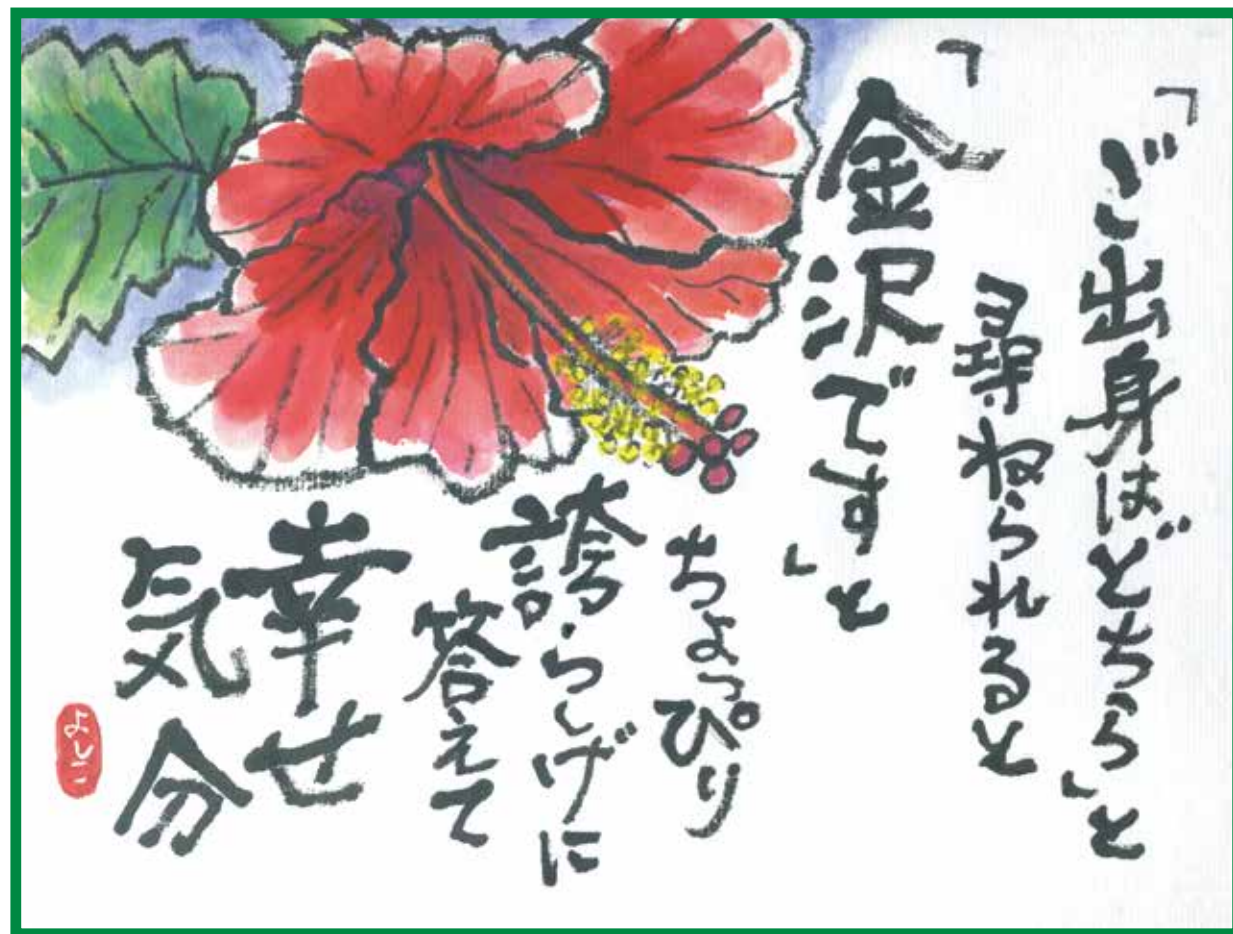 「ご出身はどちら」と
尋ねられると
「金沢です」と
ちょっぴり
誇らしげに
答えて
幸せ
気分
よしこ